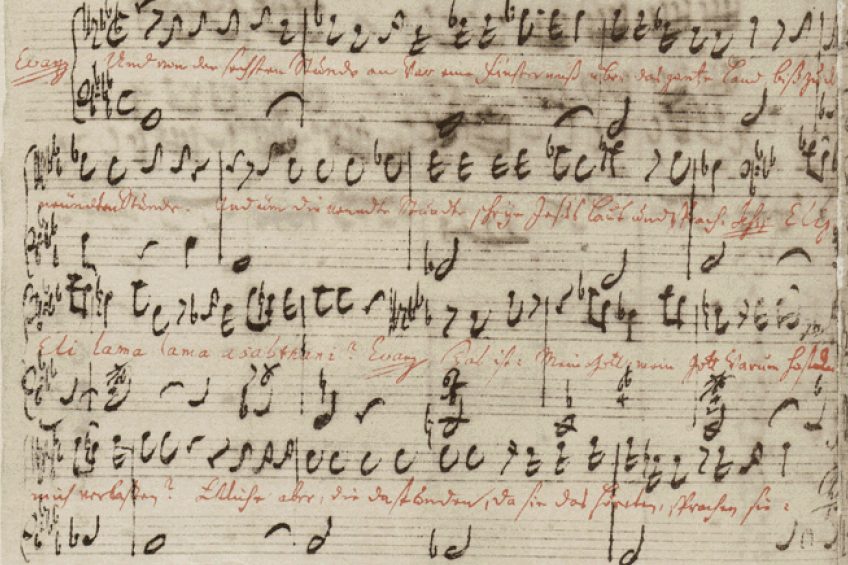 Evang Und von der sechsten Stunde an war eine Finsterniß über das gantze Land, biß zu d
neundten Stunde. Und um die neundte Stunde schrye Jesus laut und sprach: Eli,
Eli lama lama asabthani? Evang Das ist: Mein Gott, mein Gott warum hastu
mich verlaßen? Etliche aber, die da stunden, da sie das höreten, sprachen sie: